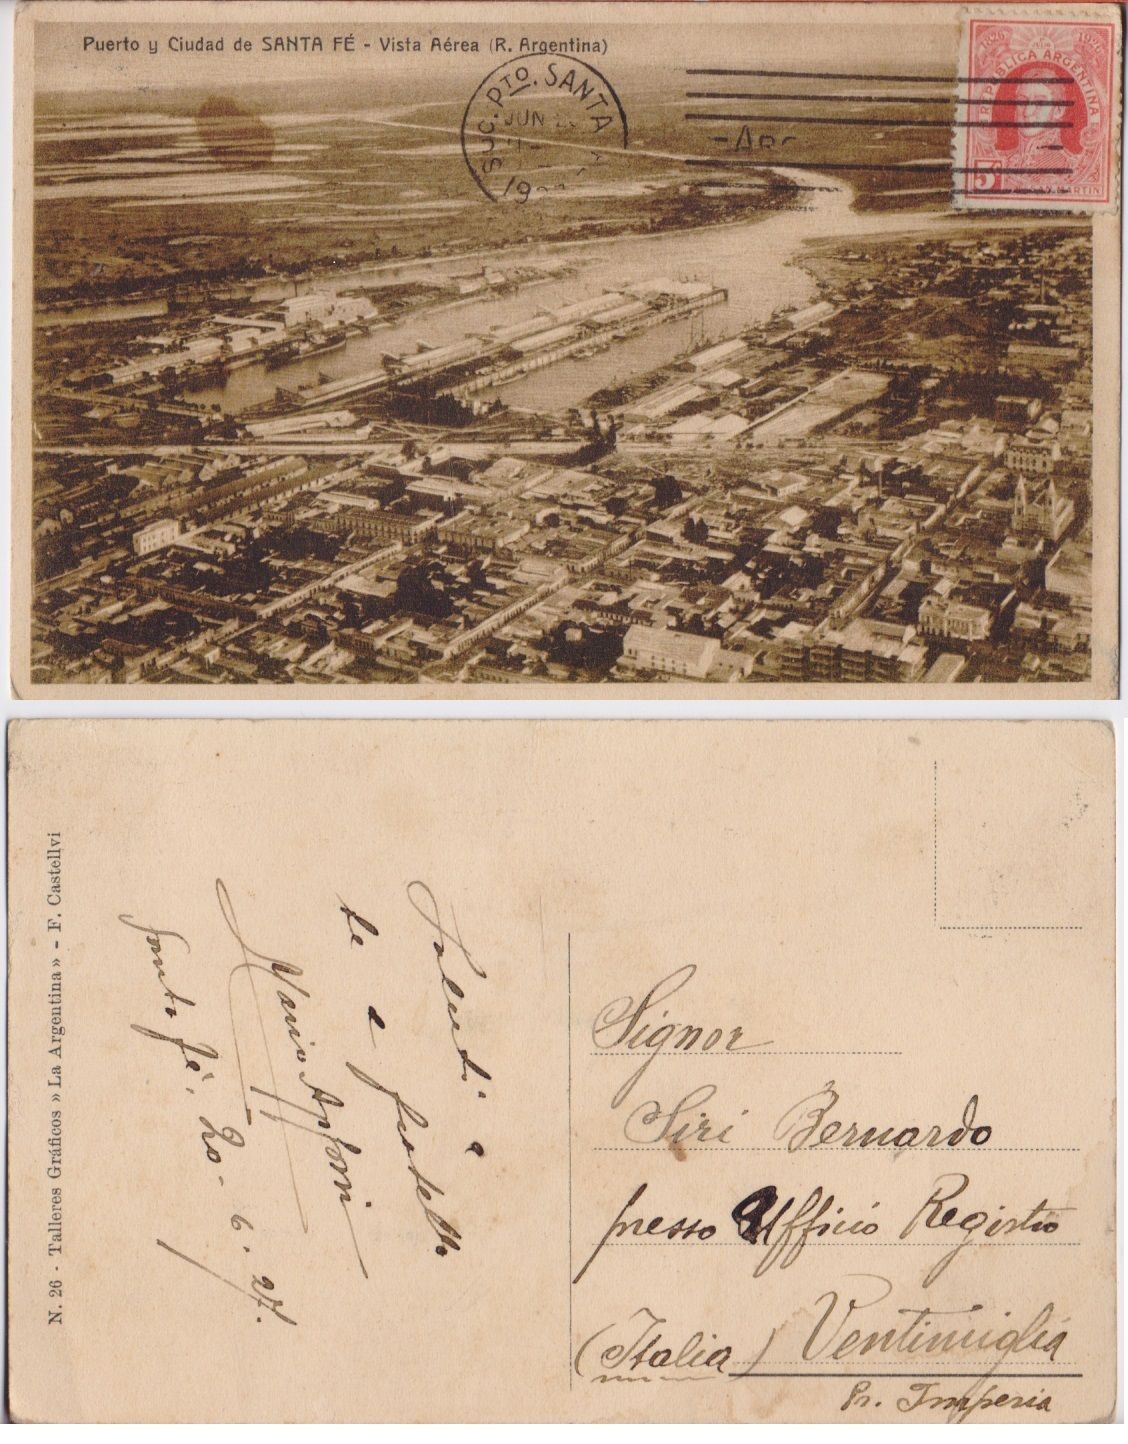 Puerto y Ciudad de SANTA FÉ - Vista Aérea (R. Argentina)
SUC. PTO. SANTA
JUN
19
1826 1926
REPÚBLICA ARGENTINA
5c
SAN MARTIN
N. 26 - Talleres Gráficos » La Argentina » - F. Castellvi
Saluti a
te e fratello
Mario
Santa fé, 20-6.27.
Signor
Siri Bernardo
presso Ufficio Registro
(Italia) Ventimiglia
Pr. Imperia